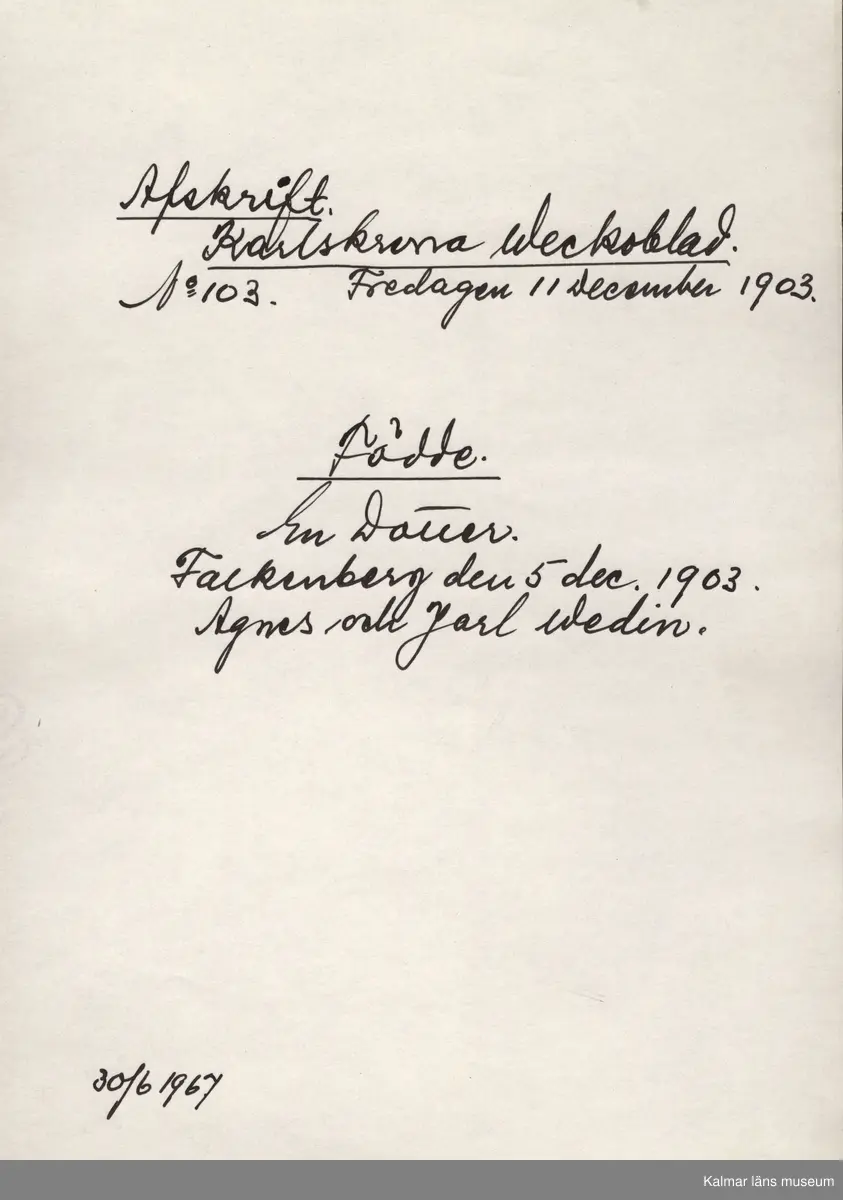 Afskrift.
Karlskrona Weckoblad.
No 103. Fredagen 11 December 1903.
Födde.
En Dotter.
Falkenberg den 5 dec. 1903.
Agnes och Jarl Wedin.
30/6 1967
Kalmar läns museum